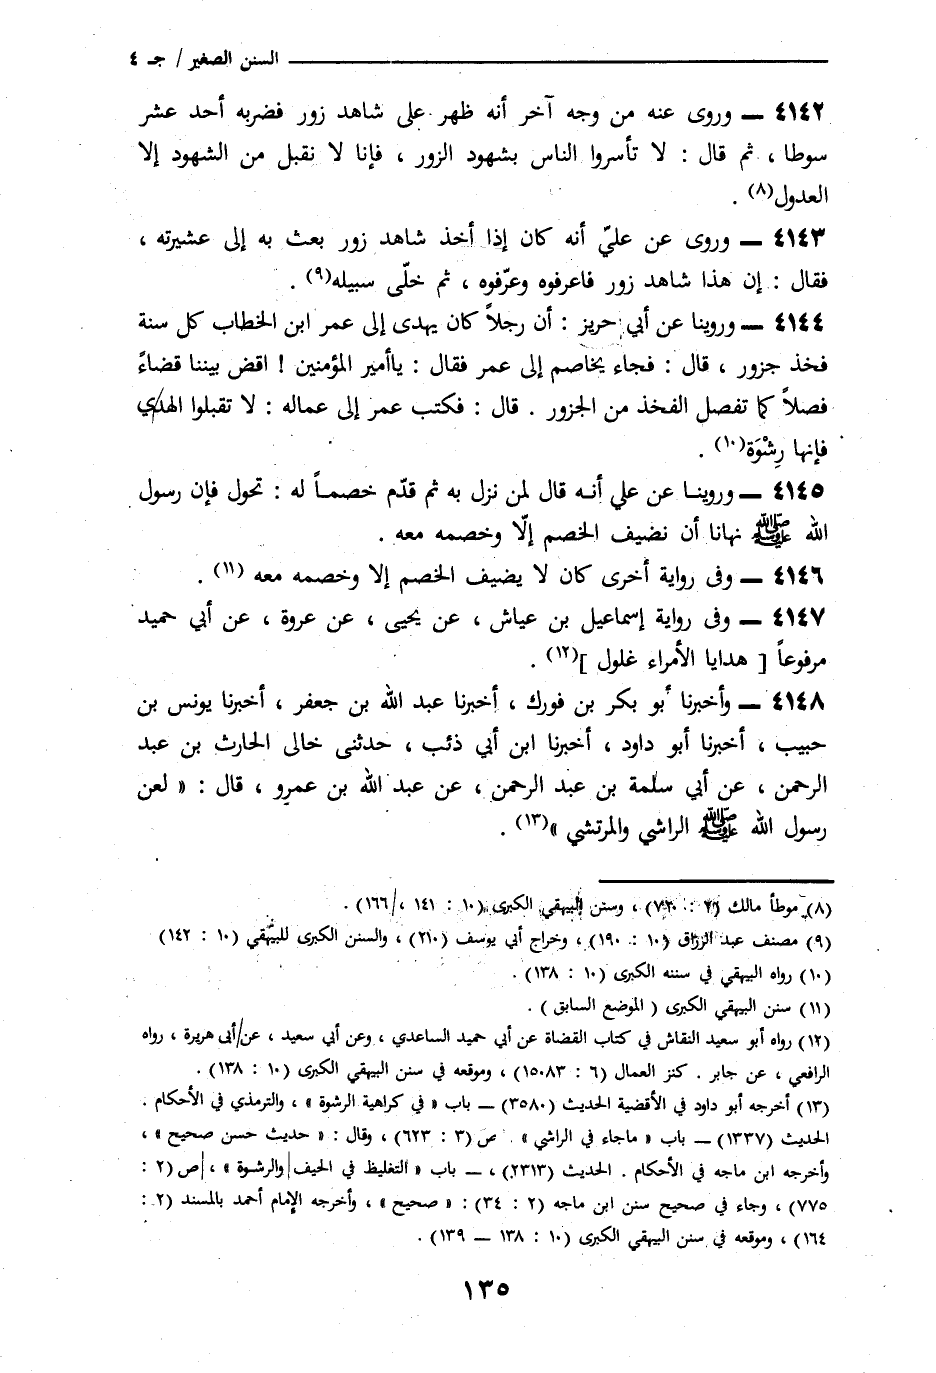 السنن الصغير / جـ ٤
٤١٤٢ ــ وروى عنه من وجه آخر أنه ظهر على شاهد زور فضربه أحد عشر
سوطا ، ثم قال : لا تأسروا الناس بشهود الزور ، فإنا لا نقبل من الشهود إلا
العدول(٨) .
٤١٤٣ ــ وروى عن عليّ أنه كان إذا أخذ شاهد زور بعث به إلى عشيرته ،
فقال : إن هذا شاهد زور فاعرفوه وعرّفوه ، ثم خلّى سبيله(٩) .
٤١٤٤ ــ وروينا عن أبي حريز : أن رجلاً كان يهدى إلى عمر ابن الخطاب كل سنة
فخذ جزور ، قال : فجاء يخاصم إلى عمر فقال : ياأمير المؤمنين ! اقض بيننا قضاءً
فصلاً كما تفصل الفخذ من الجزور . قال : فكتب عمر إلى عماله : لا تقبلوا الهدي
فإنها رِشْوَة(١٠) .
٤١٤٥ ــ وروينا عن علي أنه قال لمن نزل به ثم قدّم خصماً له : تحول فإن رسول
الله ﷺ نهانا أن نضيف الخصم إلّا وخصمه معه .
٤١٤٦ ــ وفى رواية أخرى كان لا يضيف الخصم إلا وخصمه معه (١١) .
٤١٤٧ ــ وفى رواية إسماعيل بن عياش ، عن يحيى ، عن عروة ، عن أبي حميد
مرفوعاً [ هدايا الأمراء غلول ](١٢) .
٤١٤٨ ــ وأخبرنا أبو بكر بن فورك ، أخبرنا عبد الله بن جعفر ، أخبرنا يونس بن
حبيب ، أخبرنا أبو داود ، أخبرنا ابن أبي ذئب ، حدثنى خالى الحارث بن عبد
الرحمن ، عن أبي سلمة بن عبد الرحمن ، عن عبد الله بن عمرو ، قال : « لعن
رسول الله ﷺ الراشي والمرتشي »(١٣) .
(٨) موطأ مالك (٢ : ٧٢٠) ، وسنن البيهقي الكبرى (١٠ : ١٤١ ، ١٦٦) .
(٩) مصنف عبد الرزاق (١٠ : ١٩٠) ، وخراج أبي يوسف (٢١٠) ، والسنن الكبرى للبيهقي (١٠ : ١٤٢)
(١٠) رواه البيهقي في سننه الكبرى (١٠ : ١٣٨) .
(١١) سنن البيهقي الكبرى ( الموضع السابق ) .
(١٢) رواه أبو سعيد النقاش في كتاب القضاة عن أبي حميد الساعدي ، وعن أبي سعيد ، عن أبى هريرة ، رواه
الرافعي ، عن جابر . كنز العمال (٦ : ١٥٠٨٣) ، وموقعه في سنن البيهقي الكبرى (١٠ : ١٣٨) .
(١٣) أخرجه أبو داود في الأقضية الحديث (٣٥٨٠) ــ باب « في كراهية الرشوة » ، والترمذي في الأحكام .
الحديث (١٣٣٧) ــ باب « ماجاء في الراشي » . ص (٣ : ٦٢٣) ، وقال : « حديث حسن صحيح » ،
وأخرجه ابن ماجه في الأحكام . الحديث (٢٣١٣) ، ــ باب « التغليظ في الحيف والرشوة » ، ص (٢ :
٧٧٥) ، وجاء في صحيح سنن ابن ماجه (٢ : ٣٤) : « صحيح » ، وأخرجه الإمام أحمد بالمسند (٢ :
١٦٤) ، وموقعه في سنن البيهقي الكبرى (١٠ : ١٣٨ ــ ١٣٩) .
١٣٥